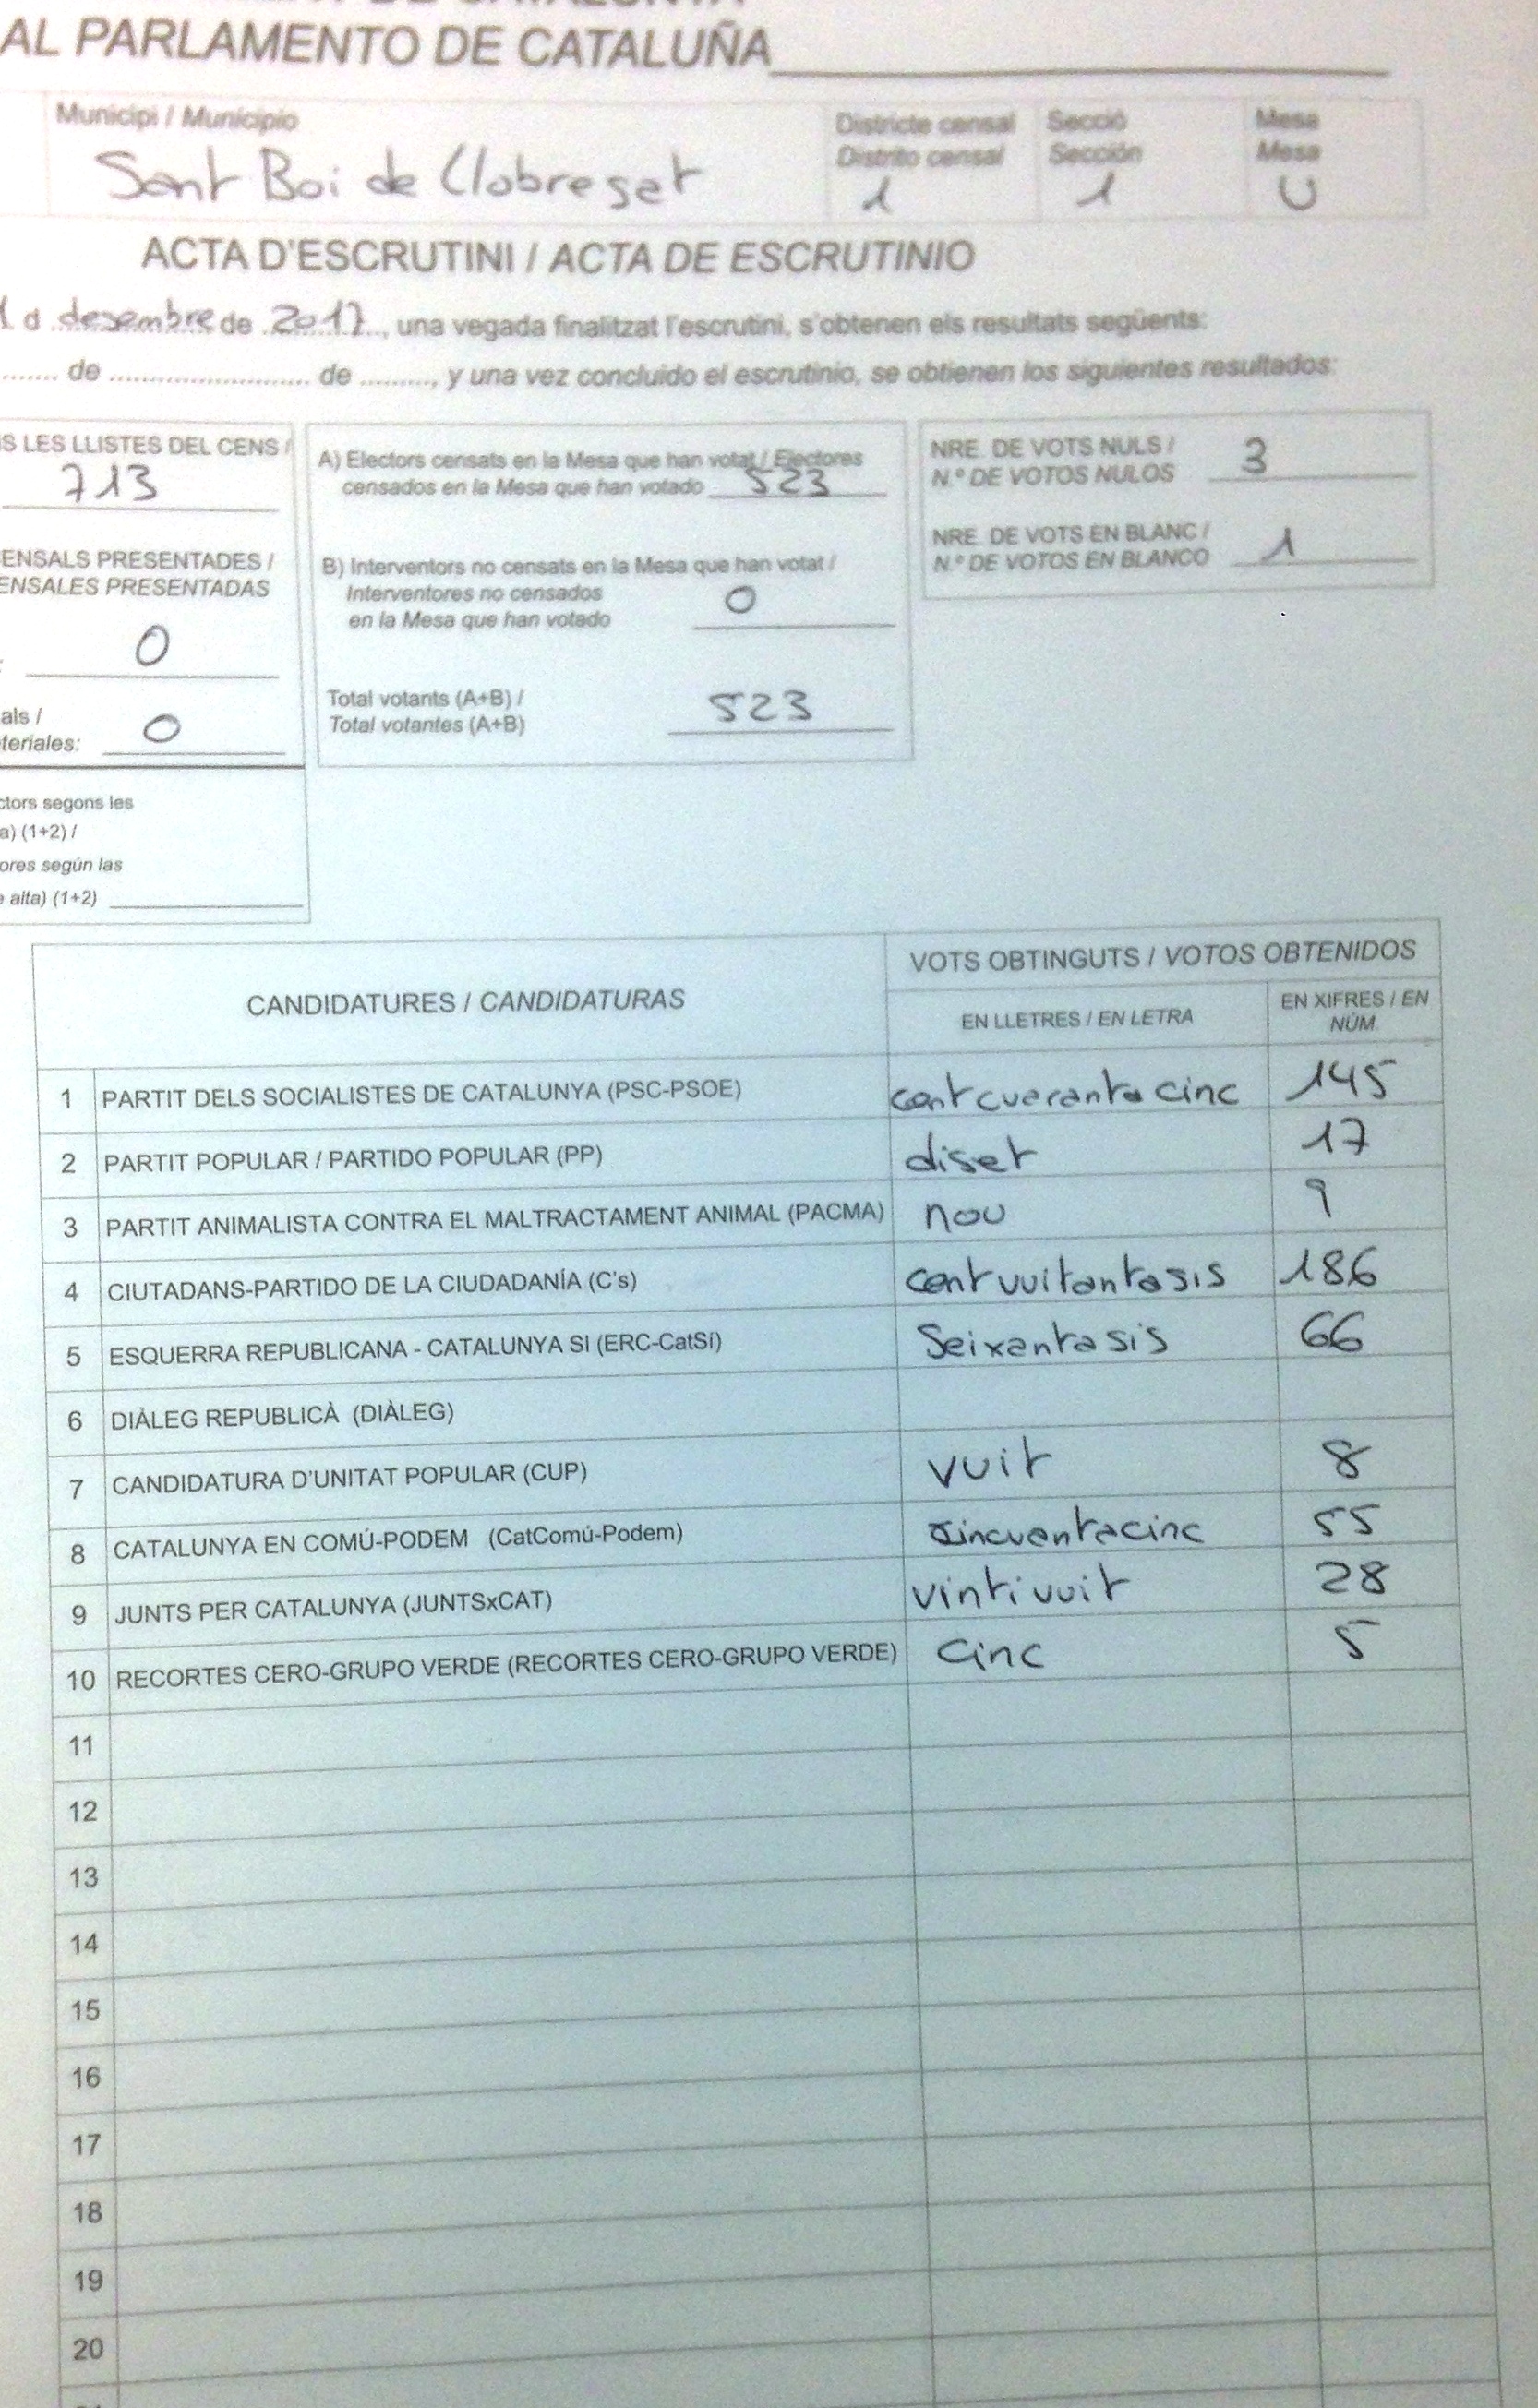 AL PARLAMENTO DE CATALUÑA
Municipi / Municipio
Districte censal
Distrito censal
Secció
Sección
Mesa
Mesa
Sant Boi de Llobregat
1
1
U
ACTA D'ESCRUTINI / ACTA DE ESCRUTINIO
d desembre de 2017, una vegada finalitzat l'escrutini, s'obtenen els resultats següents:
de de , y una vez concluido el escrutinio, se obtienen los siguientes resultados:
S LES LLISTES DEL CENS /
713
ENSALS PRESENTADES /
ENSALES PRESENTADAS
0
als /
teriales: 0
ctors segons les
a) (1+2) /
ores según las
alta) (1+2)
A) Electors censats en la Mesa que han votat / Electores
censados en la Mesa que han votado 523
B) Interventors no censats en la Mesa que han votat /
Interventores no censados
en la Mesa que han votado 0
Total votants (A+B) /
Total votantes (A+B) 523
NRE. DE VOTS NULS /
N.º DE VOTOS NULOS 3
NRE. DE VOTS EN BLANC /
N.º DE VOTOS EN BLANCO 1
CANDIDATURES / CANDIDATURAS
VOTS OBTINGUTS / VOTOS OBTENIDOS
EN LLETRES / EN LETRA
EN XIFRES / EN
NÚM.
1 PARTIT DELS SOCIALISTES DE CATALUNYA (PSC-PSOE) cent cuaranta cinc 145
2 PARTIT POPULAR / PARTIDO POPULAR (PP) diset 17
3 PARTIT ANIMALISTA CONTRA EL MALTRACTAMENT ANIMAL (PACMA) nou 9
4 CIUTADANS-PARTIDO DE LA CIUDADANÍA (C's) cent vuitantasis 186
5 ESQUERRA REPUBLICANA - CATALUNYA SI (ERC-CatSí) Seixantasis 66
6 DIÀLEG REPUBLICÀ (DIÀLEG)
7 CANDIDATURA D'UNITAT POPULAR (CUP) vuit 8
8 CATALUNYA EN COMÚ-PODEM (CatComú-Podem) cincuentacinc 55
9 JUNTS PER CATALUNYA (JUNTSxCAT) vintivuit 28
10 RECORTES CERO-GRUPO VERDE (RECORTES CERO-GRUPO VERDE) cinc 5
11
12
13
14
15
16
17
18
19
20